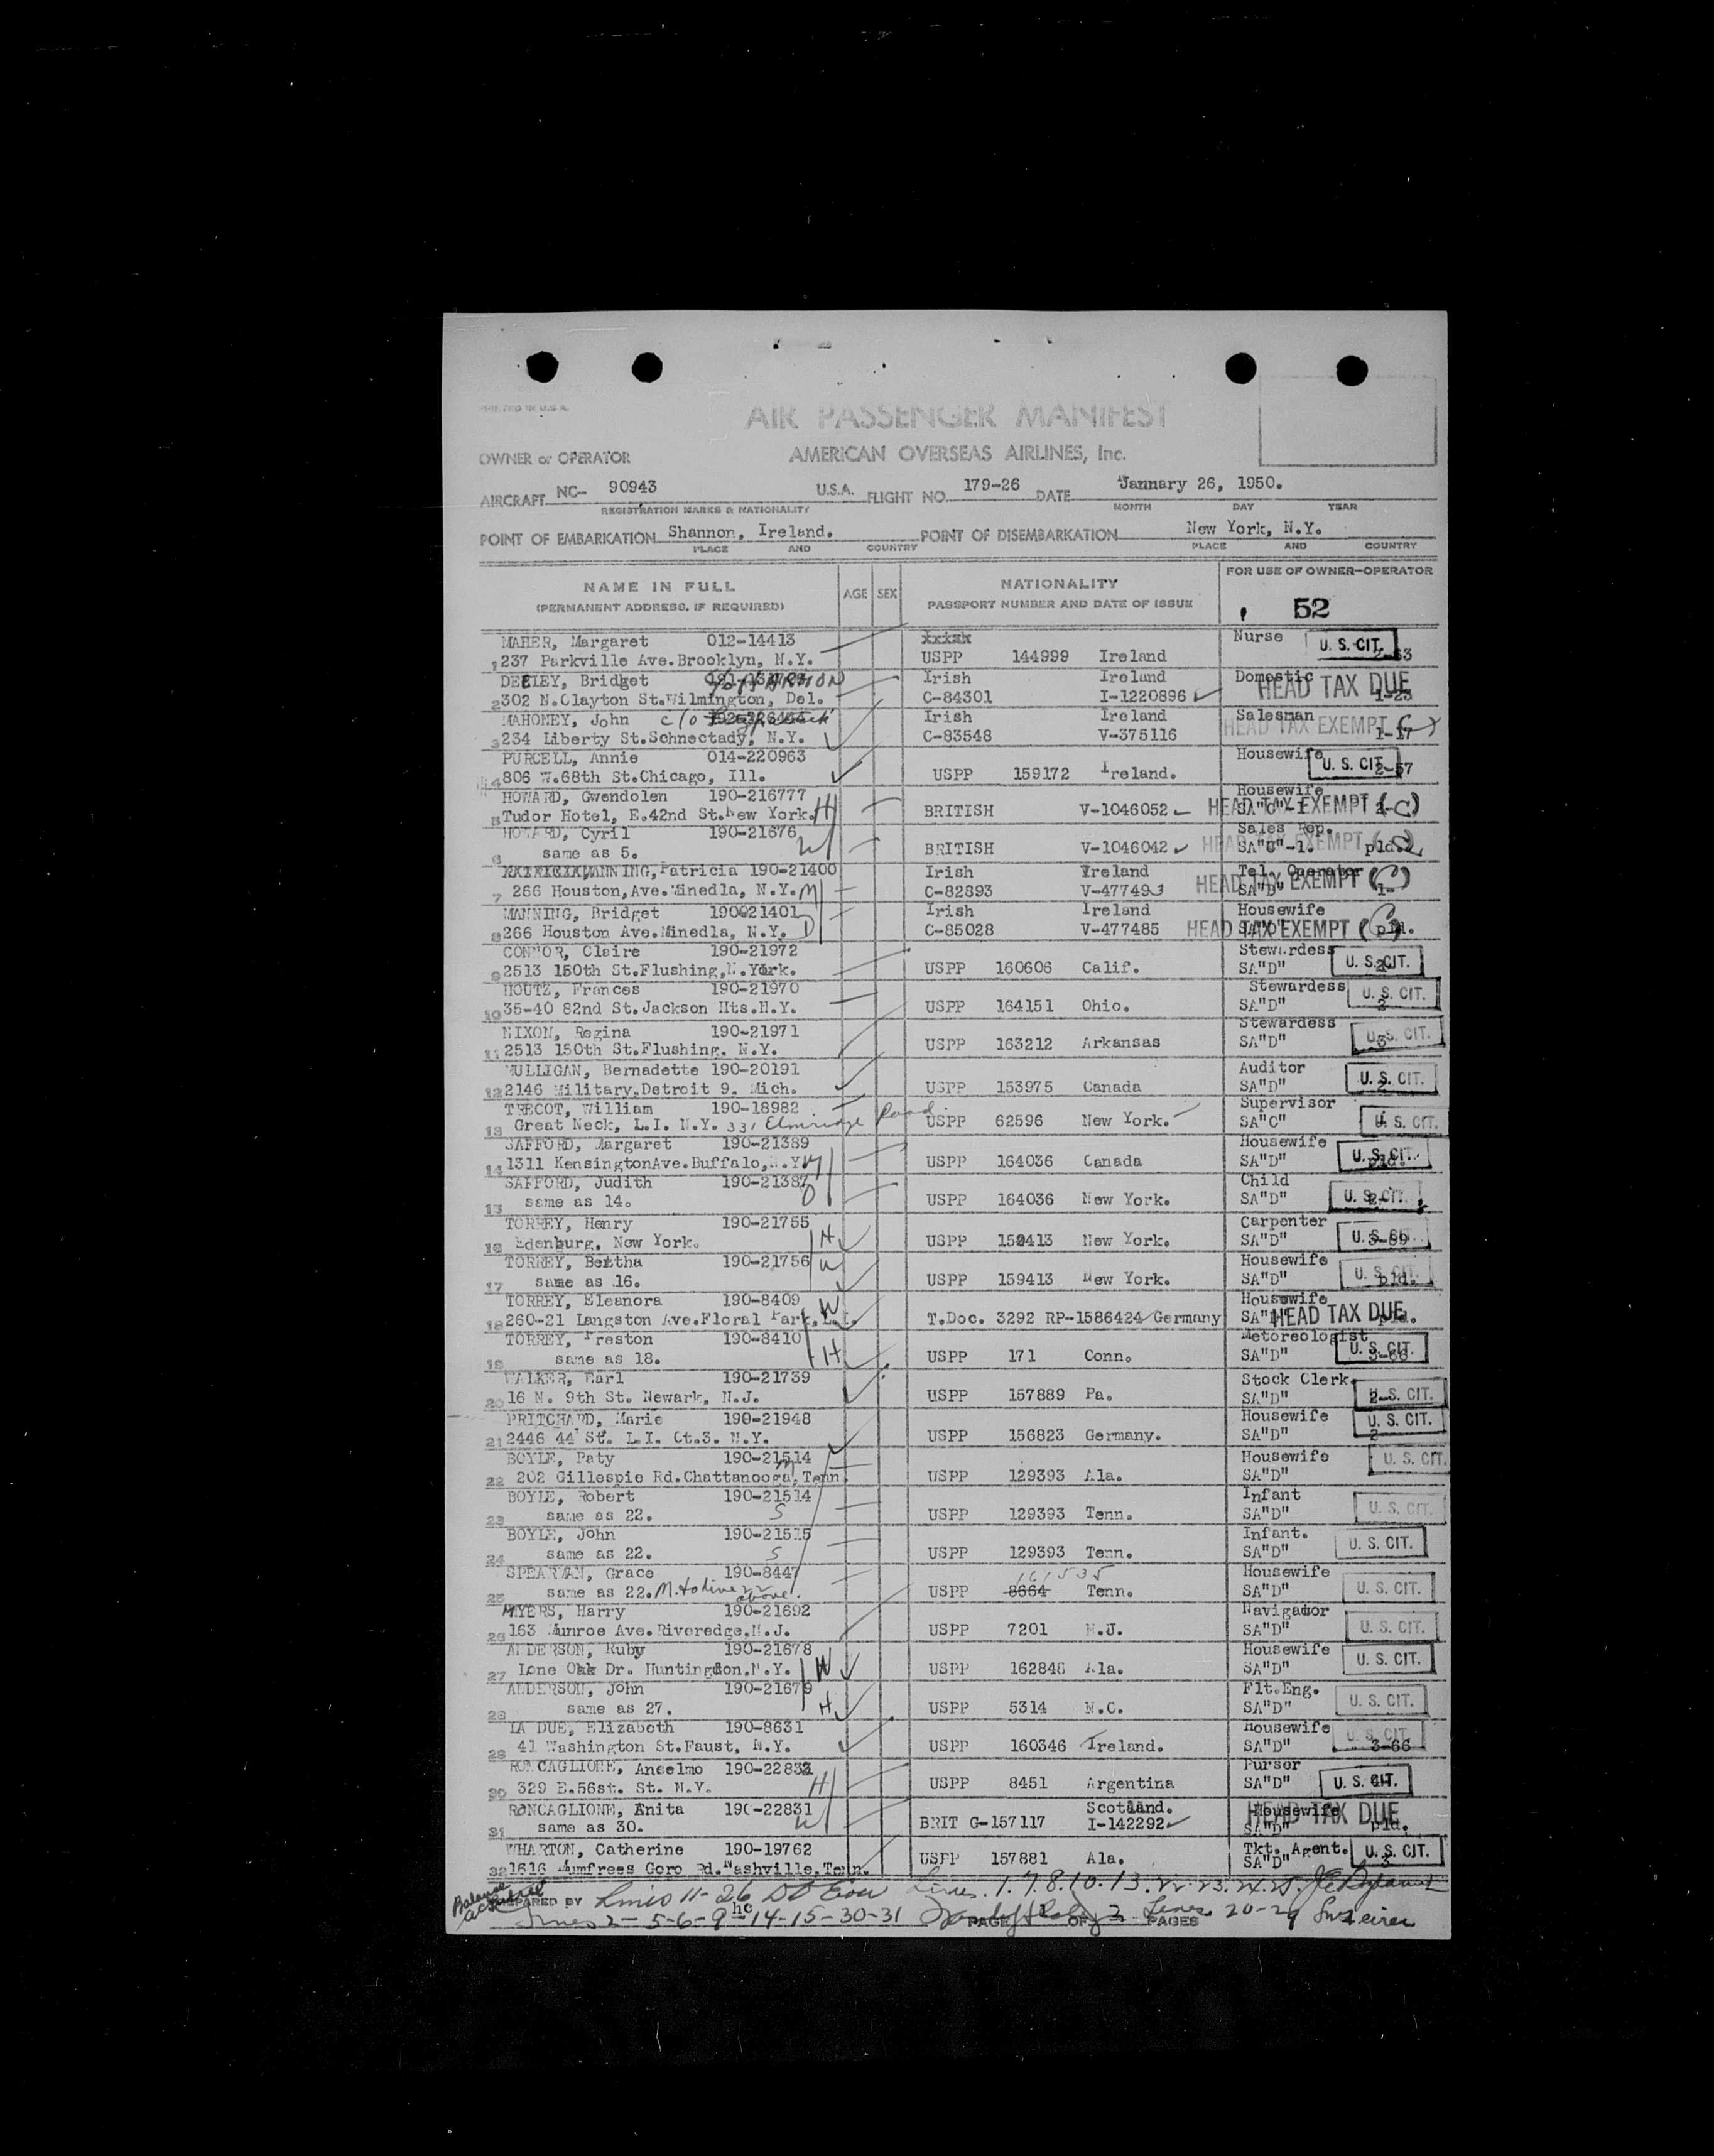 PRINTED IN U.S.A.
AIR PASSENGER MANIFEST
OWNER or OPERATOR AMERICAN OVERSEAS AIRLINES, Inc.
AIRCRAFT NC- 90943 U.S.A. FLIGHT NO. 179-26 DATE January 26, 1950.
REGISTRATION MARKS & NATIONALITY MONTH DAY YEAR
POINT OF EMBARKATION Shannon, Ireland. POINT OF DISEMBARKATION New York, N.Y.
PLACE AND COUNTRY PLACE AND COUNTRY
NAME IN FULL AGE SEX NATIONALITY FOR USE OF OWNER-OPERATOR
(PERMANENT ADDRESS, IF REQUIRED) PASSPORT NUMBER AND DATE OF ISSUE 52
MAHER, Margaret 012-14413 xxxxx Nurse U. S. CIT.
1 237 Parkville Ave.Brooklyn, N.Y. USPP 144999 Ireland
DEELEY, Bridget Irish Ireland Domestic HEAD TAX DUE
2 302 N.Clayton St.Wilmington, Del. C-84301 I-1220896 1-23
MAHONEY, John c/o Irish Ireland Salesman HEAD TAX EXEMPT
3 234 Liberty St.Schnectady, N.Y. C-83548 V-375116 1-17
PURCELL, Annie 014-220963 Housewife U. S. CIT.
4 806 W.68th St.Chicago, Ill. USPP 159172 Ireland. 2-57
HOWARD, Gwendolen 190-216777 Housewife
5 Tudor Hotel, E.42nd St.New York. H BRITISH V-1046052 HEAD TAX EXEMPT (C)
HOWARD, Cyril 190-21676 Sales Rep. HEAD TAX EXEMPT
6 same as 5. W BRITISH V-1046042 SA"C"-1. pld.
MANNING, Patricia 190-21400 Irish Ireland Tel. Operator HEAD TAX EXEMPT (C)
7 266 Houston,Ave.Minedla, N.Y. M C-82893 SA"D"
MANNING, Bridget 190021401 Irish Ireland Housewife
8 266 Houston Ave.Minedla, N.Y. D C-85028 V-477485 HEAD TAX EXEMPT (C) pld.
CONNOR, Claire 190-21972 Stewardess
9 2513 150th St.Flushing,N.York. USPP 160606 Calif. SA"D" U. S. CIT.
HOUTZ, Frances 190-21970 Stewardess U. S. CIT.
10 35-40 82nd St.Jackson Hts.N.Y. USPP 164151 Ohio. SA"D" 2
NIXON, Regina 190-21971 Stewardess
11 2513 150th St.Flushing. N.Y. USPP 163212 Arkansas SA"D" U. S. CIT.
MULLIGAN, Bernadette 190-20191 Auditor
12 2146 Military.Detroit 9. Mich. USPP 153975 Canada SA"D" U. S. CIT.
TRECOT, William 190-18982 Supervisor
13 Great Neck, L.I. N.Y. 331 Elmridge Road USPP 62596 New York. SA"C" U. S. CIT.
SAFFORD, Margaret 190-21389 Housewife
14 1311 KensingtonAve.Buffalo,N.Y. M USPP 164036 Canada SA"D" U. S. CIT. pld.
SAFFORD, Judith 190-21387 Child
15 same as 14. D USPP 164036 New York. SA"D" U. S. CIT.
TORREY, Henry 190-21755 Carpenter
16 Edenburg. New York. H USPP 159413 New York. SA"D" U. S. CIT.
TORREY, Bertha 190-21756 W Housewife
17 same as 16. USPP 159413 New York. SA"D" U. S. CIT. pld.
TORREY, Eleanora 190-8409 W Housewife
18 260-21 Langston Ave.Floral Park, L.I. T.Doc. 3292 RP-1586424 Germany HEAD TAX DUE
TORREY, Preston 190-8410 Metoreologist
19 same as 18. H USPP 171 Conn. SA"D" U. S. CIT. 3-66
WALKER, Earl 190-21739 Stock Clerk.
20 16 N. 9th St. Newark, N.J. USPP 157889 Pa. SA"D" U. S. CIT.
PRITCHARD, Marie 190-21948 Housewife U. S. CIT.
21 2446 44 St. L.I. Ct.3. N.Y. USPP 156823 Germany. SA"D" 2
BOYLE, Paty 190-21514 Housewife U. S. CIT.
22 202 Gillespie Rd.Chattanooga, Tenn. m USPP 129393 Ala. SA"D"
BOYLE, Robert 190-21514 Infant
23 same as 22. S USPP 129393 Tenn. SA"D" U. S. CIT.
BOYLE, John 190-21515 Infant.
24 same as 22. S USPP 129393 Tenn. SA"D" U. S. CIT.
SPEARMAN, Grace 190-8447 161535 Housewife
25 same as 22. M. to line 22 above. USPP 8664 Tenn. SA"D" U. S. CIT.
MYERS, Harry 190-21692 Navigator
26 163 Munroe Ave.Riveredge,N.J. USPP 7201 N.J. SA"D" U. S. CIT.
ANDERSON, Ruby 190-21678 Housewife
27 Lone Oak Dr. Huntington.N.Y. W USPP 162848 Ala. SA"D" U. S. CIT.
ANDERSON, John 190-21679 Flt.Eng.
28 same as 27. H USPP 5314 N.C. SA"D" U. S. CIT.
LA DUE, Elizabeth 190-8631 Housewife
29 41 Washington St.Faust, N.Y. USPP 160346 Ireland. SA"D" U. S. CIT. 3-66
RONCAGLIONE, Anselmo 190-22832 Purser
30 329 E.56st. St. N.Y. H USPP 8451 Argentina SA"D" U. S. CIT.
RONCAGLIONE, Anita 190-22831 Scotland. Housewife HEAD TAX DUE
31 same as 30. W BRIT G-157117 I-142292 SA"D" pld.
WHARTON, Catherine 190-19762 Tkt. Agent.
32 1616 Mumfrees Goro Rd.Nashville.Tenn. USPP 157881 Ala. SA"D" U. S. CIT.
PREPARED BY Lines 11-26 Lines 1.7.8.10.13.22.23.24.25.
Lines 2-5-6-9-14-15-30-31 PAGE OF 2 PAGES Lines 20-29